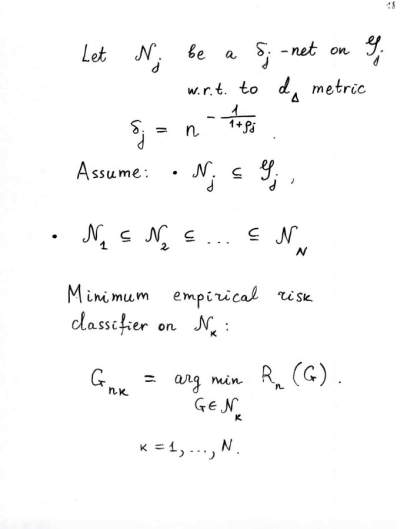 18
Let 𝒩_j be a δ_j-net on 𝒢_j
w.r.t. to d_Δ metric
δ_j = n^{-1/(1+ρ_j)}.
Assume: • 𝒩_j ⊆ 𝒢_j,
• 𝒩_1 ⊆ 𝒩_2 ⊆ ... ⊆ 𝒩_N
Minimum empirical risk
classifier on 𝒩_κ:
G_{nκ} = arg min R_n(G).
G∈𝒩_κ
κ = 1, ..., N.